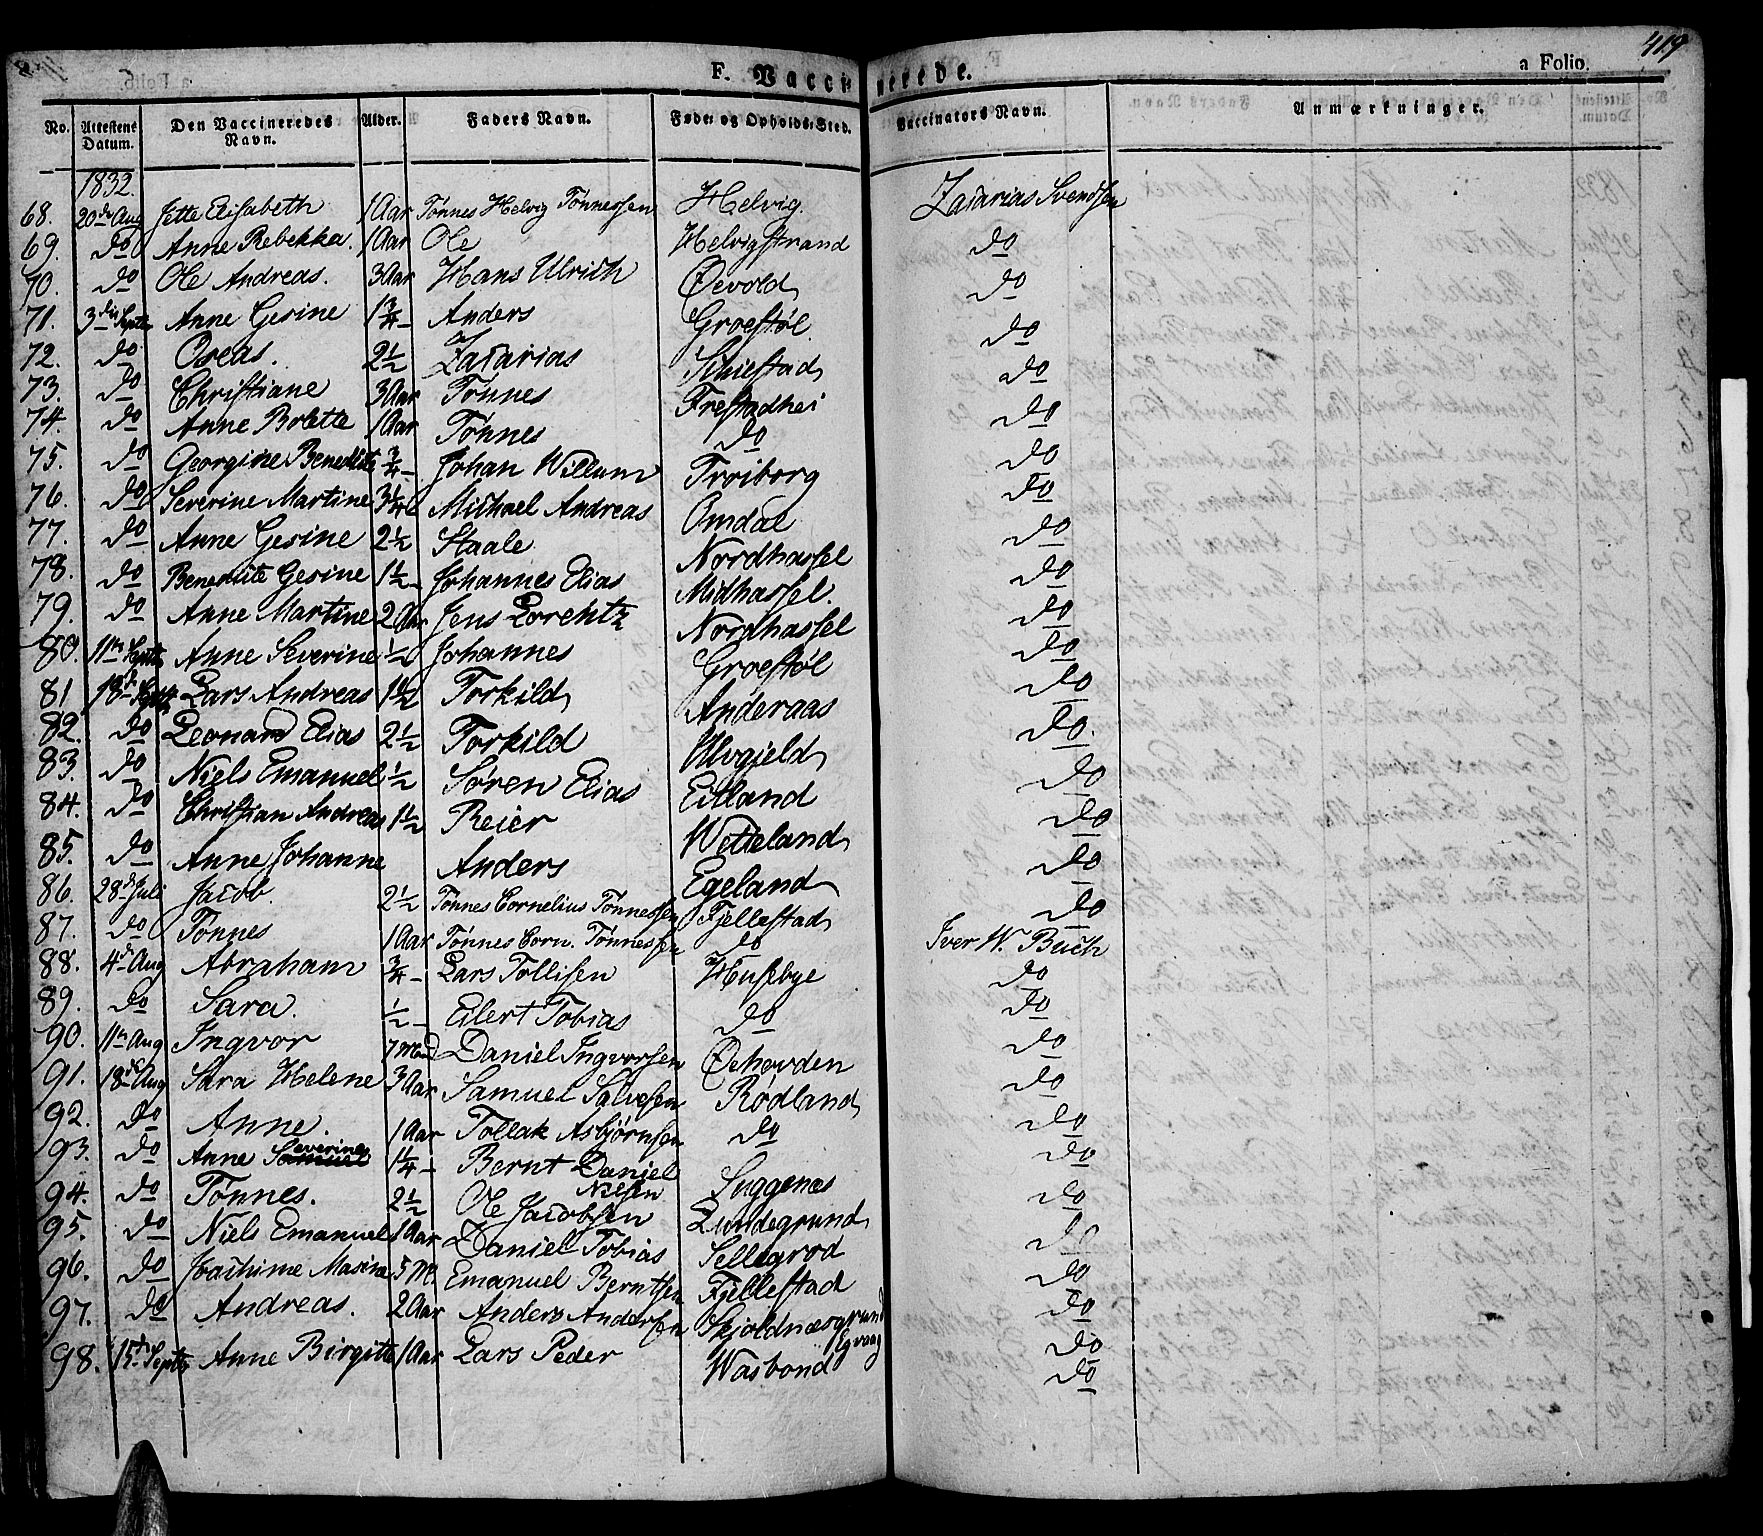 F. Vaccinerede.
a Folio. 419
No. Attestens Datum. Den Vaccineredes Navn. Alder. Faders Navn. Føde- og Opholds-Sted. Vaccinators Navn. Anmærkninger.
1832.
68. 20de Aug Jette Elisabeth 1 Aar Tønnes Helvig Tønnessen Helvig. Zacarias Svendsen
69. do Anne Rebekka. 1 Aar Ole Helvigstrand do
70. do Ole Andreas. 3 Aar Hans Ulrich Øevold do
71. 3die Septb Anne Gesine 1 3/4 - Anders Groestøl do
72. do Oseas. 2 1/2 Zacarias Schiestad do
73. do Christiane 3 Aar Tønnes Frestadhei do
74. do Anne Bolette 1 Aar Tønnes do do
75. do Georgine Benedicte 3/4 - Johan Willum Troiborg do
76. do Severine Martine 3 1/4 Michael Andreas Omdal do
77. do Anne Gesine 2 1/2 Staale Nordhassel do
78. do Benedicte Gesine 1 1/2 - Johannes Elias Midhassel. do
79. do Anne Martine 2 Aar Jens Lorentz Nordhassel do
80. 11te Septb Anne Severine 1/2 Johannes Groestøl do
81 18de Septb Lars Andreas 1 1/2 Torkild Anderaas do
82. do Leonard Elias 2 1/2 Torkild Ulvgield do.
83. do Niels Emanuel 1/2 Søren Elias Eitland do
84. do Christian Andreas 1 1/2 Reier Wetteland do
85. do Anne Johanne Anders Egeland do
86. 28de Juli Jacob. 2 1/2 Tønnes Cornelius Tønnessen Fjellestad do
87. do Tønnes 1 Aar Tønnes Corn. Tønnessen do Iver W. Buch
88. 4de Aug Abraham 3/4 - Lars Tollisen Husebye do
89. do Sara. 1/2 - Eilert Tobias do do
90. 11te Aug Ingvor 7 Maad Daniel Ingvorsen Øehovden do
91. 18de Aug Sara Helene 3 Aar Samuel Salvesen Rødland do
92. do Anne. 1 Aar Tollak Asbjørnsen do do
93. do Anne Samuel Severine 1 1/4 - Bernt Daniel Nilsen Snggenæs do
94. do Tønnes. 2 1/2 Ole Jacobsen Lundegrund do
95. do Niels Emanuel 1 Aar Daniel Tobias Sellegrod do
96. do Joachime Masine 5 M. Emanuel Berntsen Fjellestad do
97. do Andreas. 2 Aar Anders Andersen Skjoldnæsgrund do
98. 15de Septb Anne Birgitte 1 Aar Lars Peder Wasbond do
do